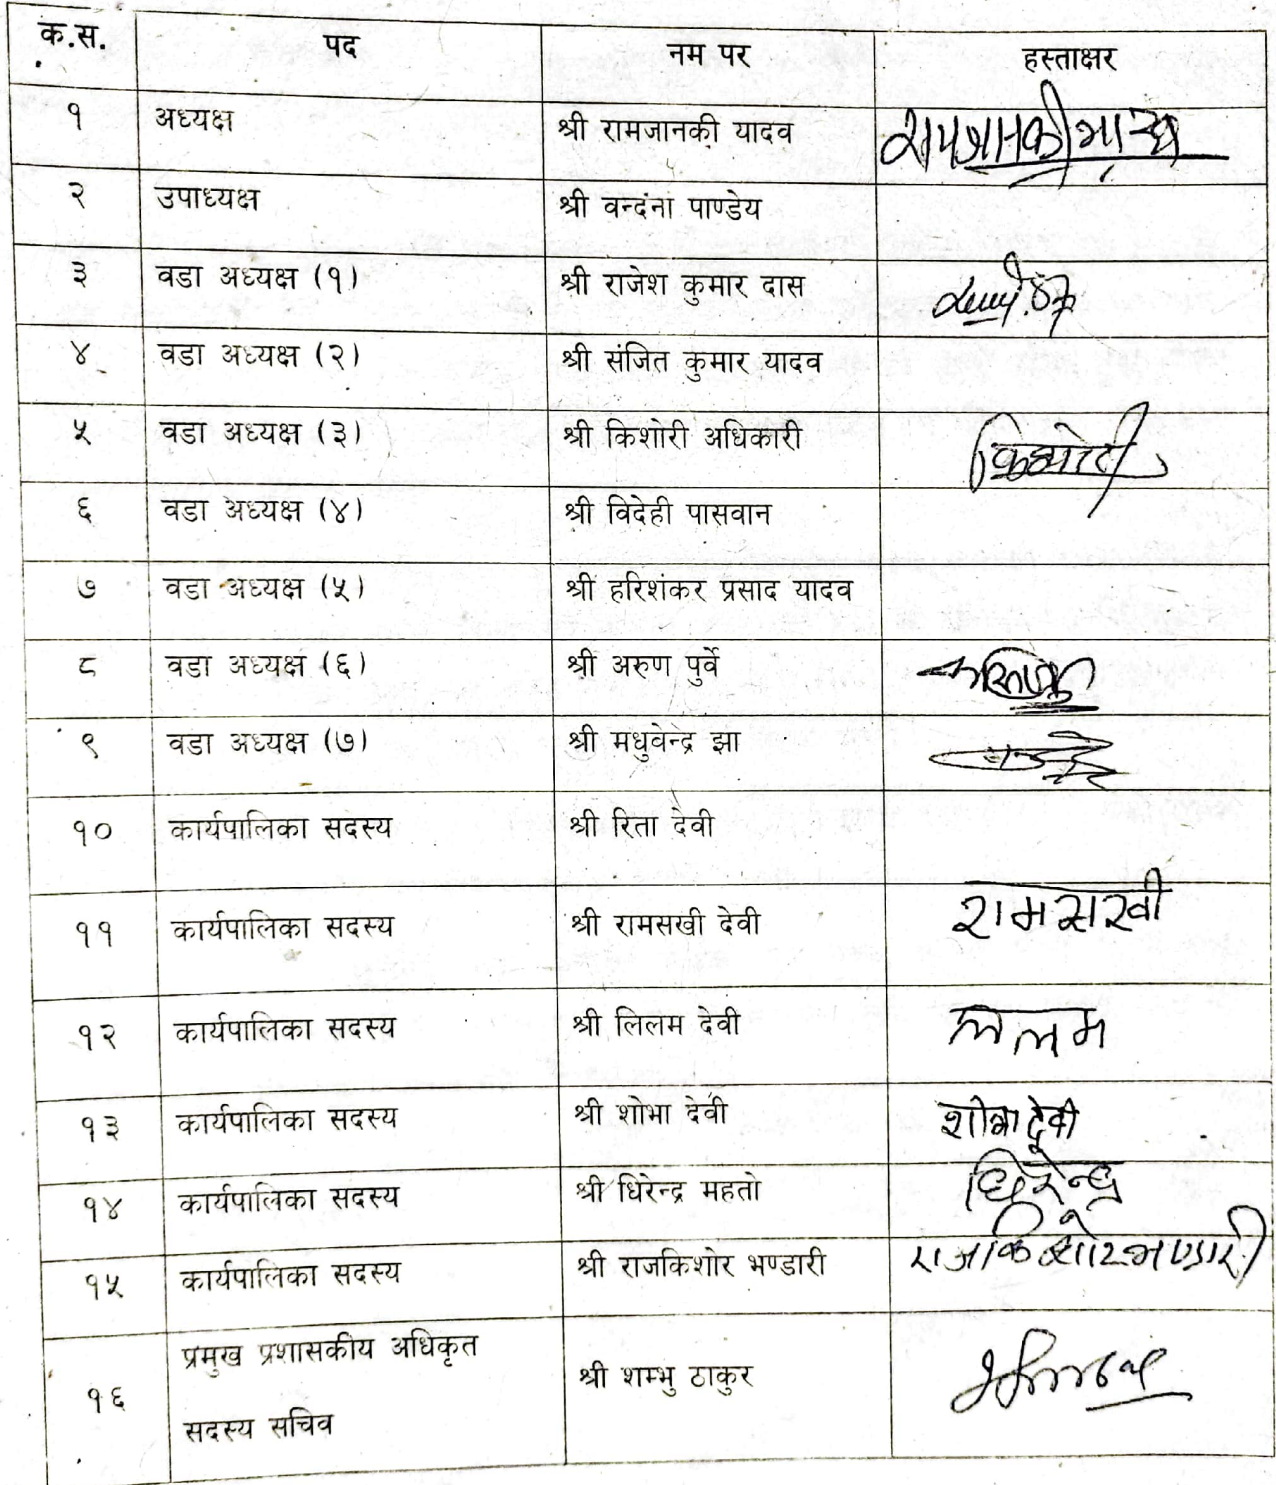 क.स. पद नम पर हस्ताक्षर
१ अध्यक्ष श्री रामजानकी यादव
२ उपाध्यक्ष श्री वन्दना पाण्डेय
३ वडा अध्यक्ष (१) श्री राजेश कुमार दास
४ वडा अध्यक्ष (२) श्री संजित कुमार यादव
५ वडा अध्यक्ष (३) श्री किशोरी अधिकारी किशोरी
६ वडा अध्यक्ष (४) श्री विदेही पासवान
७ वडा अध्यक्ष (५) श्री हरिशंकर प्रसाद यादव
८ वडा अध्यक्ष (६) श्री अरुण पुर्वे
९ वडा अध्यक्ष (७) श्री मधुवेन्द्र झा
१० कार्यपालिका सदस्य श्री रिता देवी
११ कार्यपालिका सदस्य श्री रामसखी देवी रामसखी
१२ कार्यपालिका सदस्य श्री लिलम देवी लिलम
१३ कार्यपालिका सदस्य श्री शोभा देवी शोभा देवी
१४ कार्यपालिका सदस्य श्री धिरेन्द्र महतो धिरेन्द्र
१५ कार्यपालिका सदस्य श्री राजकिशोर भण्डारी राजकिशोर भण्डारी
१६ प्रमुख प्रशासकीय अधिकृत श्री शम्भु ठाकुर
सदस्य सचिव